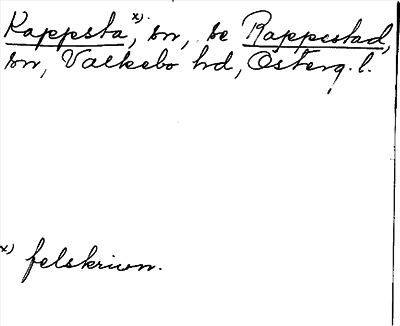 Kappsta x), sn, se Rappestad,
sn, Valkebo hd, Österg. l.
x) felskrivn.